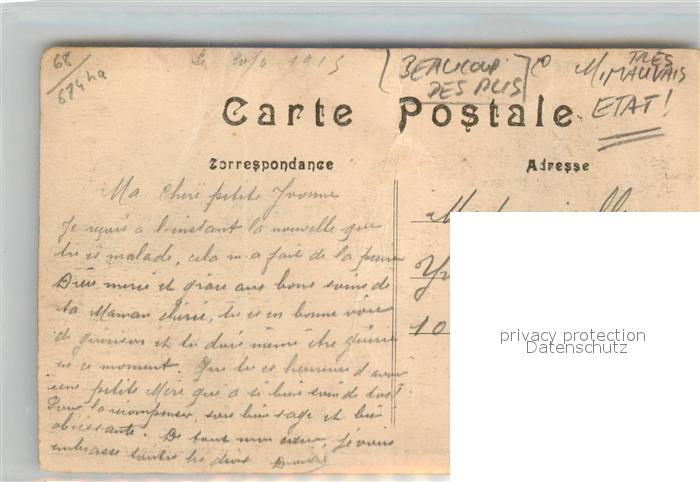 68
674 ha
Le 20/6 1915
BEAUCOUP
DES PLIS
TRES
MAUVAIS
ETAT!
Carte Postale
Correspondance
Adresse
Ma Chère petite Yvonne
Je reçois à l'instant la nouvelle que
tu es malade, cela m'a fait de la peine
Dieu merci et grâce aux bons soins de
ta Maman chérie, tu es en bonne voie
de guérison et tu dois même être guérie
en ce moment. Que tu es heureuse d'avoir
une petite Mère qui a si bien soin de toi!
Pour la récompenser, sois bien sage et bien
obéissante. De tout mon cœur, je vous
embrasse toutes les deux
Yv
10
privacy protection
Datenschutz